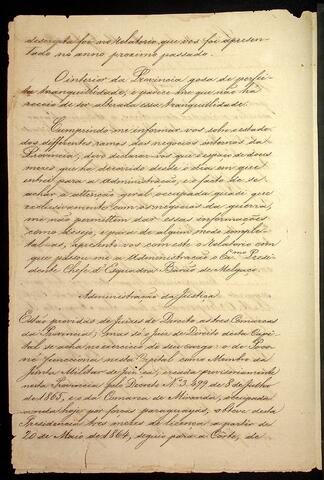 descripta foi no Relatorio, que vos foi apresen-
tado no anno proximo passado.
O interior da Provincia gosa de perfei-
ta tranquillidade, e parece-me que não ha
receio de ser alterada essa tranquillidade.
Cumprindo me informar vos sobre o estado
dos differentes ramos dos negocios internos da
Provincia, devo declarar vos que o espaço de dous
mezes, que ha decorrido desde o dia em que
entrei para a Administração, e o facto de se
achar a attenção geral occupada quasi que
exclusivamente com os negocios da guerra,
me não permittem dar essas informações
como desejo, e para de algum modo comple-
tal-as, apresento vos com este o Relatorio com
que passou me a Administração o Ex.mo Presi-
dente Chefe d'Esquadra Barão de Melgaço.
Administração da Justiça
Estão providas de Juizes de Direito as tres Comarcas
da Provincia; mas só o Juiz de Direito desta Capi-
tal se acha no exercicio de seu cargo: o de Poco-
né funcciona nesta Capital como Membro da
Junta Militar de Justiça, creada provisoriamente
nesta Provincia pelo Decreto Nº 3.499 de 8 de Julho
de 1865, e o da Comarca de Miranda, occupada
ainda hoje por forças paraguayas, obteve desta
Presidencia tres mezes de licença a partir de
20 de Maio de 1864, seguio para a Corte, de